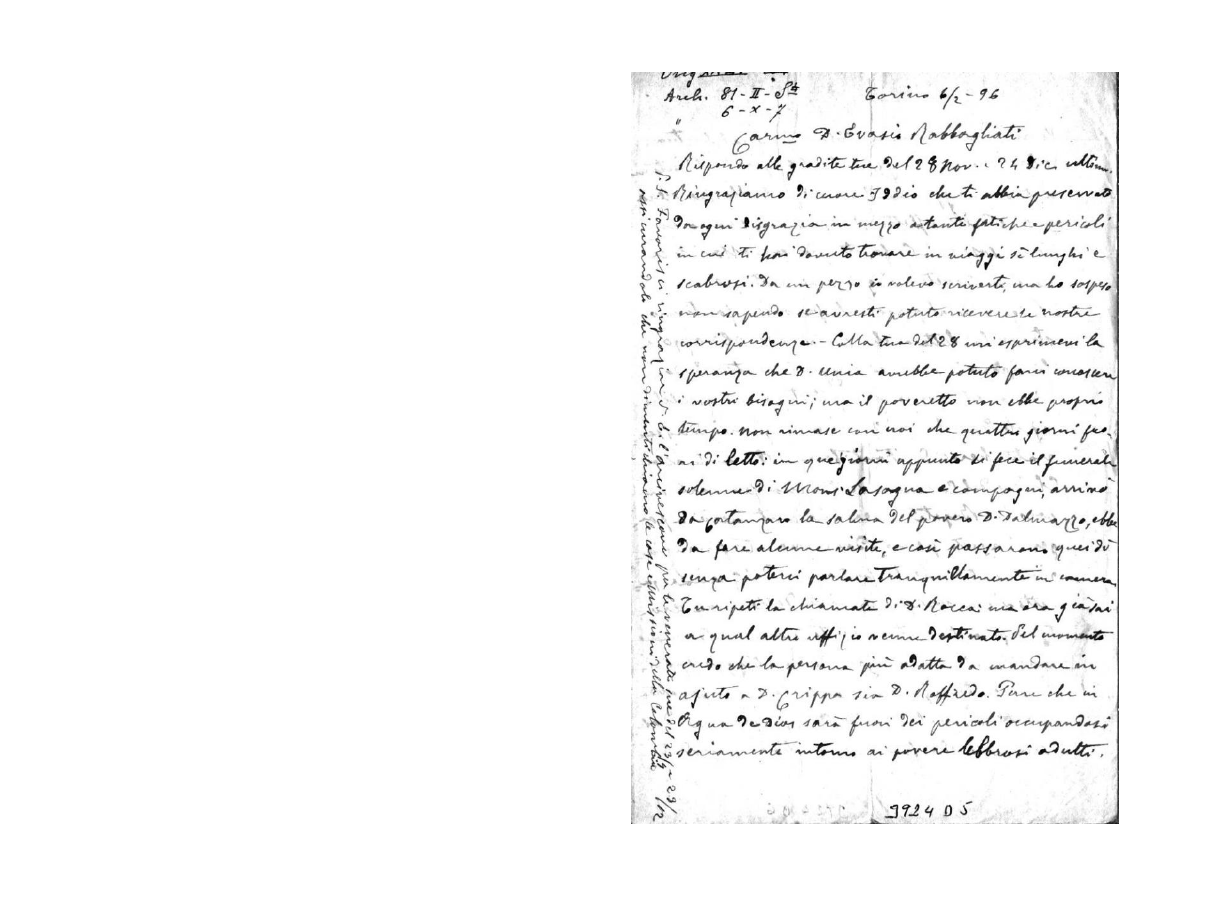 Arch. 81-II-S4
6-X-7
"
Torino 6/2-96
Carmo D. Evasio Rabbagliati
Rispondo alle gradite tue del 28 Nov. e 24 Dic. ultimo.
Ringraziamo di cuore Iddio che ti abbia preservato
da ogni disgrazia in mezzo a tante fatiche e pericoli
in cui ti sei dovuto trovare in viaggi sì lunghi e
scabrosi. Da un pezzo io volevo scriverti, ma ho sospeso
non sapendo se avresti potuto ricevere le nostre
corrispondenze. - Colla tua del 28 mi esprimevi la
speranza che D. Unia avrebbe potuto farci conoscere
i vostri bisogni; ma il poveretto non ebbe proprio
tempo. Non rimase con noi che quattro giorni fuo-
ri di letto: in que' giorni appunto si fece il funerale
solenne di Mons. Lasagna e compagni, arrivò
da Catanzaro la salma del povero D. Dalmazzo, ebbe
da fare alcune visite, e così passarono quei dì
senza poterci parlare tranquillamente in camera
Tu ripeti la chiamata di D. Rocca: ma ora già sai
a qual altro uffizio venne destinato. Pel momento
credo che la persona più adatta da mandare in
ajuto a D. Crippa sia D. Raffredo. Pare che in
Agua de Dios sarà fuori dei pericoli occupandosi
seriamente intorno ai povere lebbrosi adulti.
P.S. Favorisci ringraziare l'arcivescovo per le venerate sue del 23/9 e 29/12
assicurandolo che non dimentichiamo le case e missioni della Colombia
3924 D 5